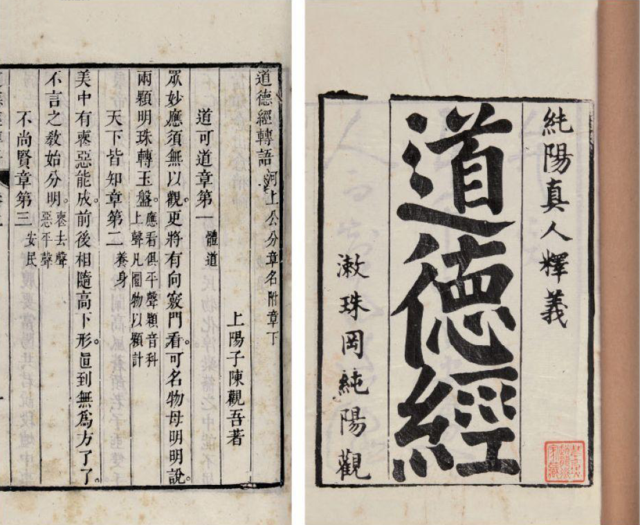 純陽真人釋義
道德經
漱珠岡純陽觀
道德經轉語 河上公分章名附章下
上陽子陳觀吾著
道可道章第一 體道
眾妙應須無以觀。更將有向竅門看。可名物母明明說。
兩顆明珠轉玉盤。應看俱平聲顆音科
上聲凡圓物以顆計
天下皆知章第二 養身
美中有惡惡能成。前後相隨高下形。直到無為方了了。
不言之教始分明。惡去聲
惡平聲
不尚賢章第三 安民